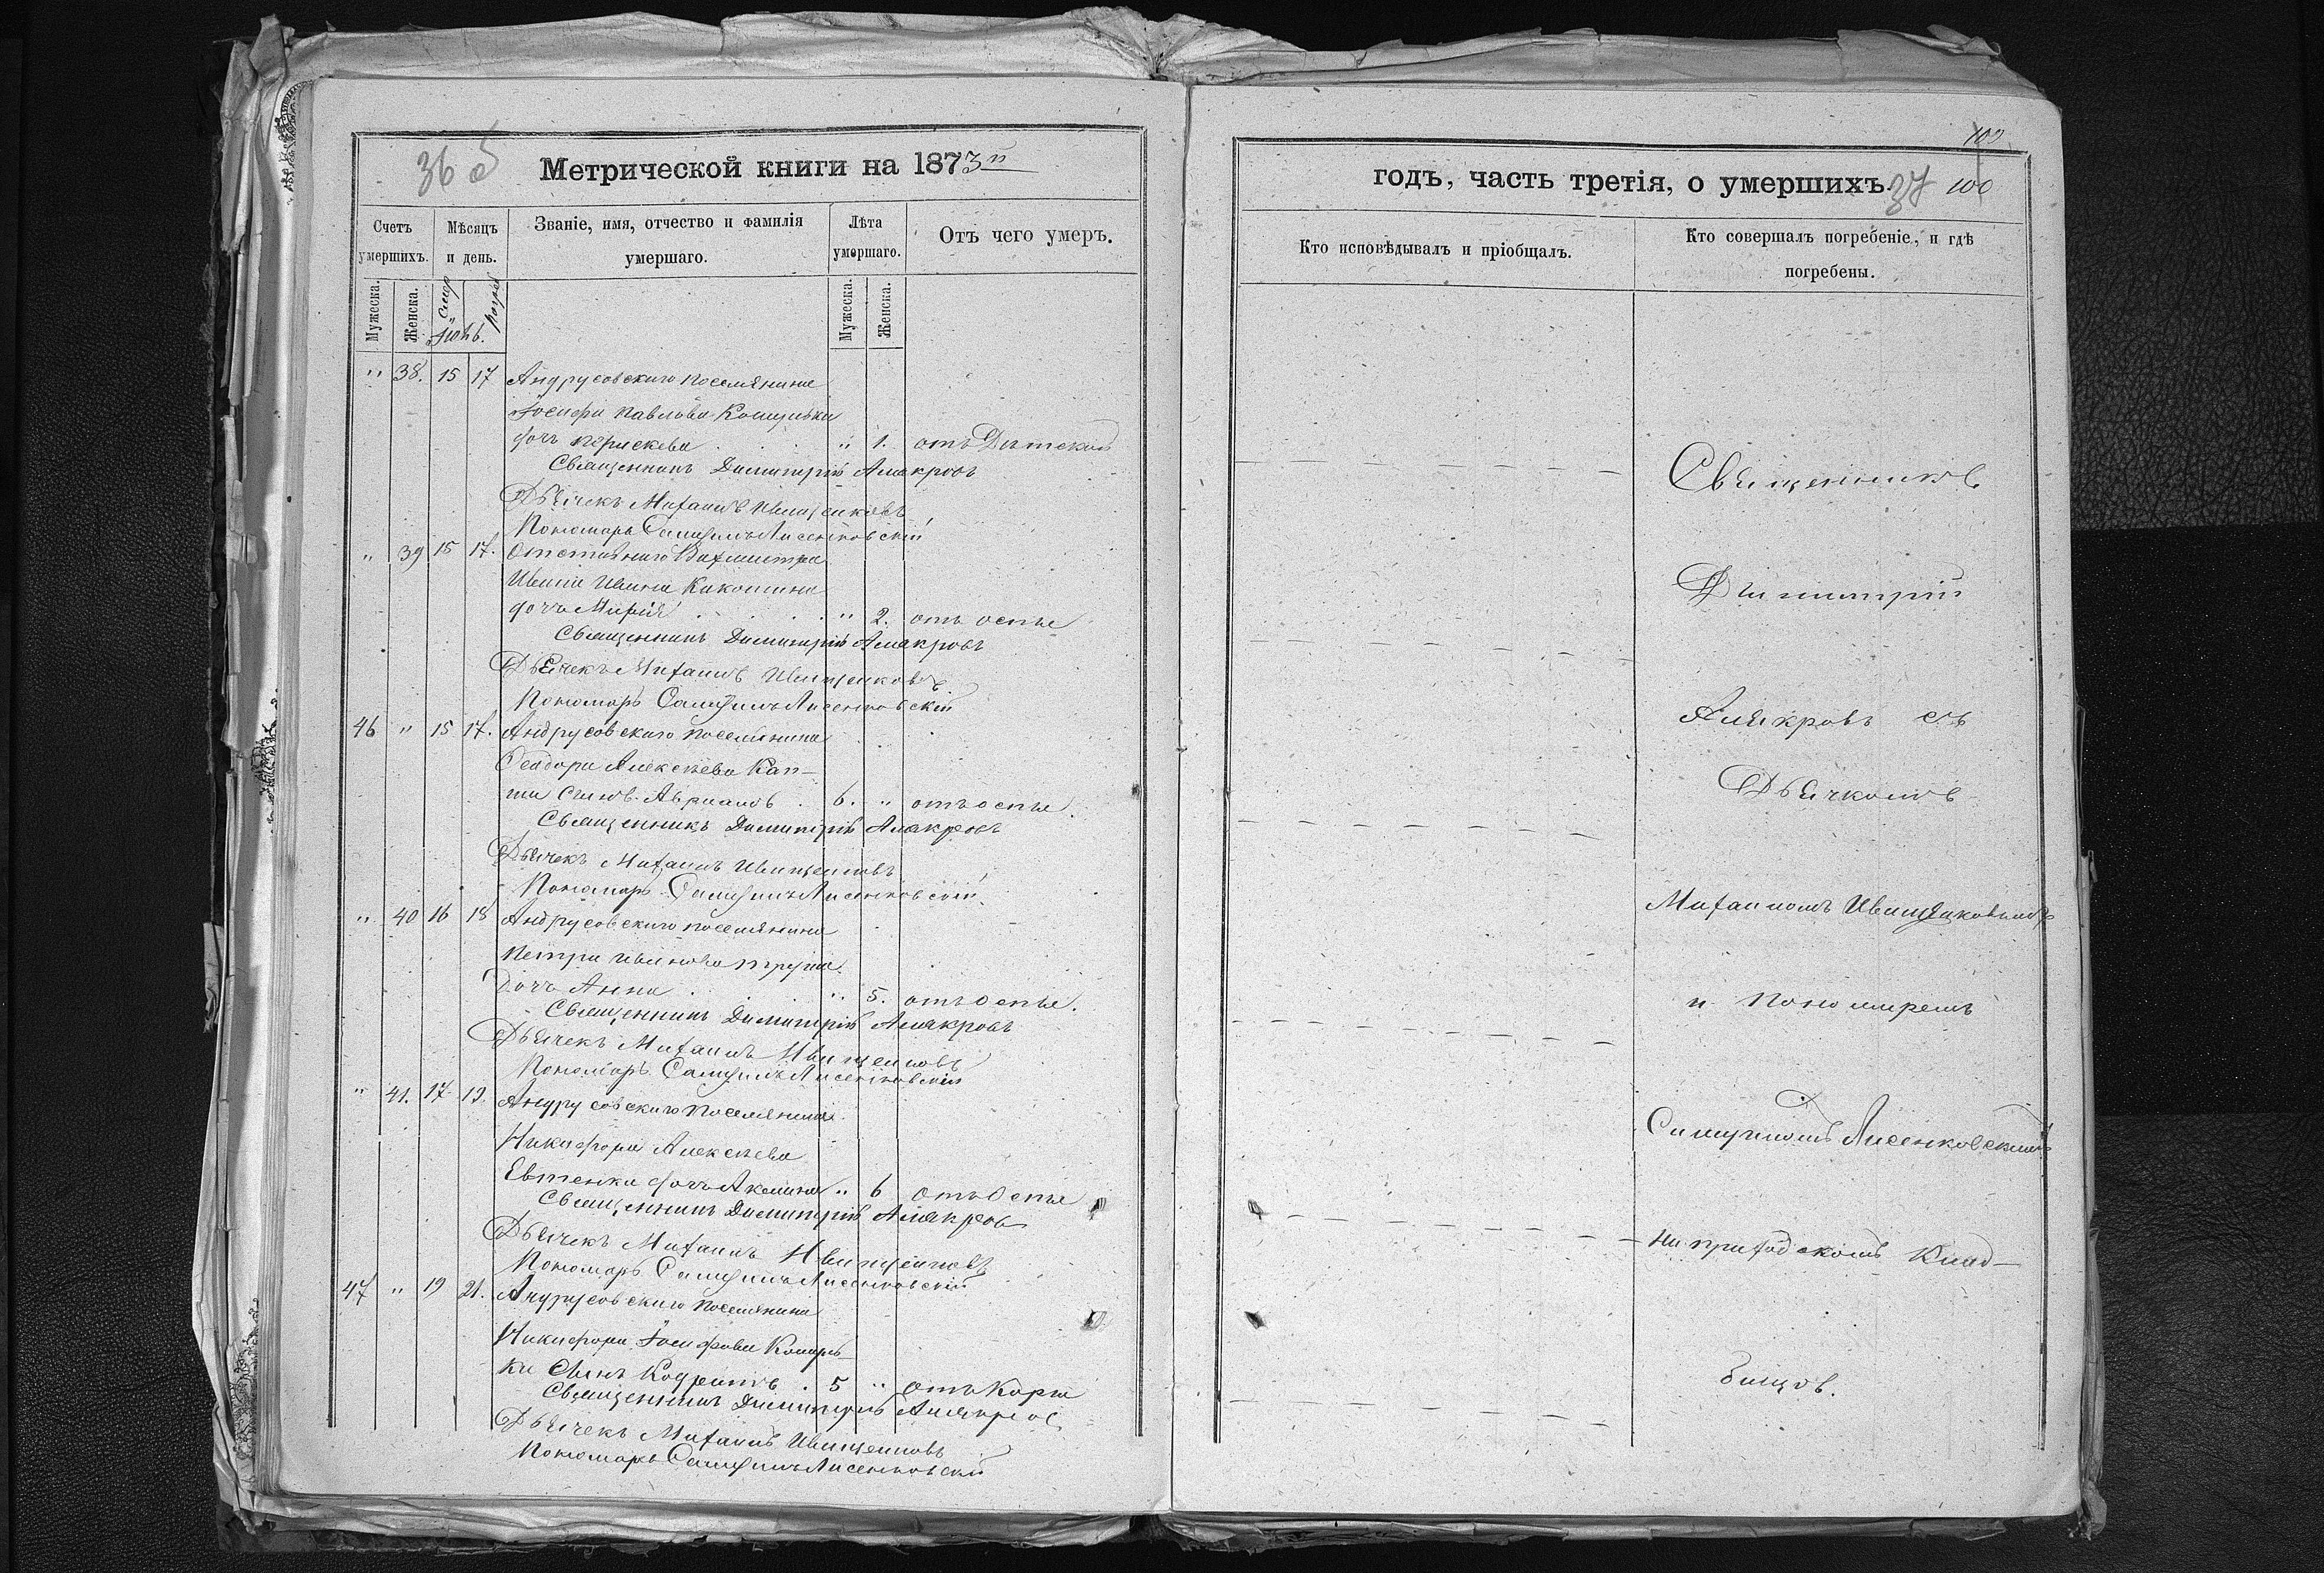 36 об
Метрической книги на 1873й
Счетъ умершихъ.
Мѣсяцъ и день.
Званіе, имя, отчество и фамилія умершаго.
Лѣта умершаго.
Отъ чего умеръ.
Мужеска. Женска. Мужеска. Женска.
" 38. 15 17 Андрусовскаго поселянина
Іосифа Павлова
дочь Параскева " 1. отъ Дѣтской
Священникъ Димитрій Алякровъ
Дьячекъ Михаилъ Иващенковъ
Пономарь Самуилъ Лисенковскій
" 39 15 17. Отставнаго Вахмистра
Ивана Ивана Какошина
дочь Марія " 2. отъ оспы
Священникъ Димитрій Алякровъ
Дьячекъ Михаилъ Иващенковъ
Пономарь Самуилъ Лисенковскій
46 " 15 17. Андрусовскаго поселянина
Феодора Алексѣева Кап-
ша Сынъ 6. " отъ оспы.
Священникъ Димитрій Алякровъ
Дьячекъ Михаилъ Иващенковъ
Пономарь Самуилъ Лисенковскій.
" 40 16 18 Андрусовскаго поселянина
Петра Иванова
Дочь Анна " 5. отъ Оспы.
Священникъ Димитрій Алякровъ
Дьячекъ Михаилъ Иващенковъ
Пономарь Самуилъ Лисенковскій
" 41. 17 19. Андрусовскаго поселянина
Никифора Алексѣева
Евтенка дочь Акилина " 6 отъ Оспы
Священникъ Димитрій Алякров
Дьячекъ Михаилъ Иващенковъ
Пономарь Самуилъ Лисенковскій
47 " 19 21. Андрусовскаго поселянина
Никифора Іосифова
ка Сынъ Кодратъ. 5 " отъ Кори
Священникъ Димитрій Алякров
Дьячекъ Михаилъ Иващенковъ
Пономарь Самуилъ Лисенковскій
102
годъ, часть третія, о умершихъ. 37 100
Кто исповѣдывалъ и пріобщалъ.
Кто совершалъ погребеніе, и гдѣ погребены.
Священникъ
Димитрій
Алякровъ съ
Дьячкомъ
Михаиломъ Иващенковымъ
и Пономаремъ
Самуиломъ Лисенковскимъ
на приходскомъ Клад-
бищѣ.